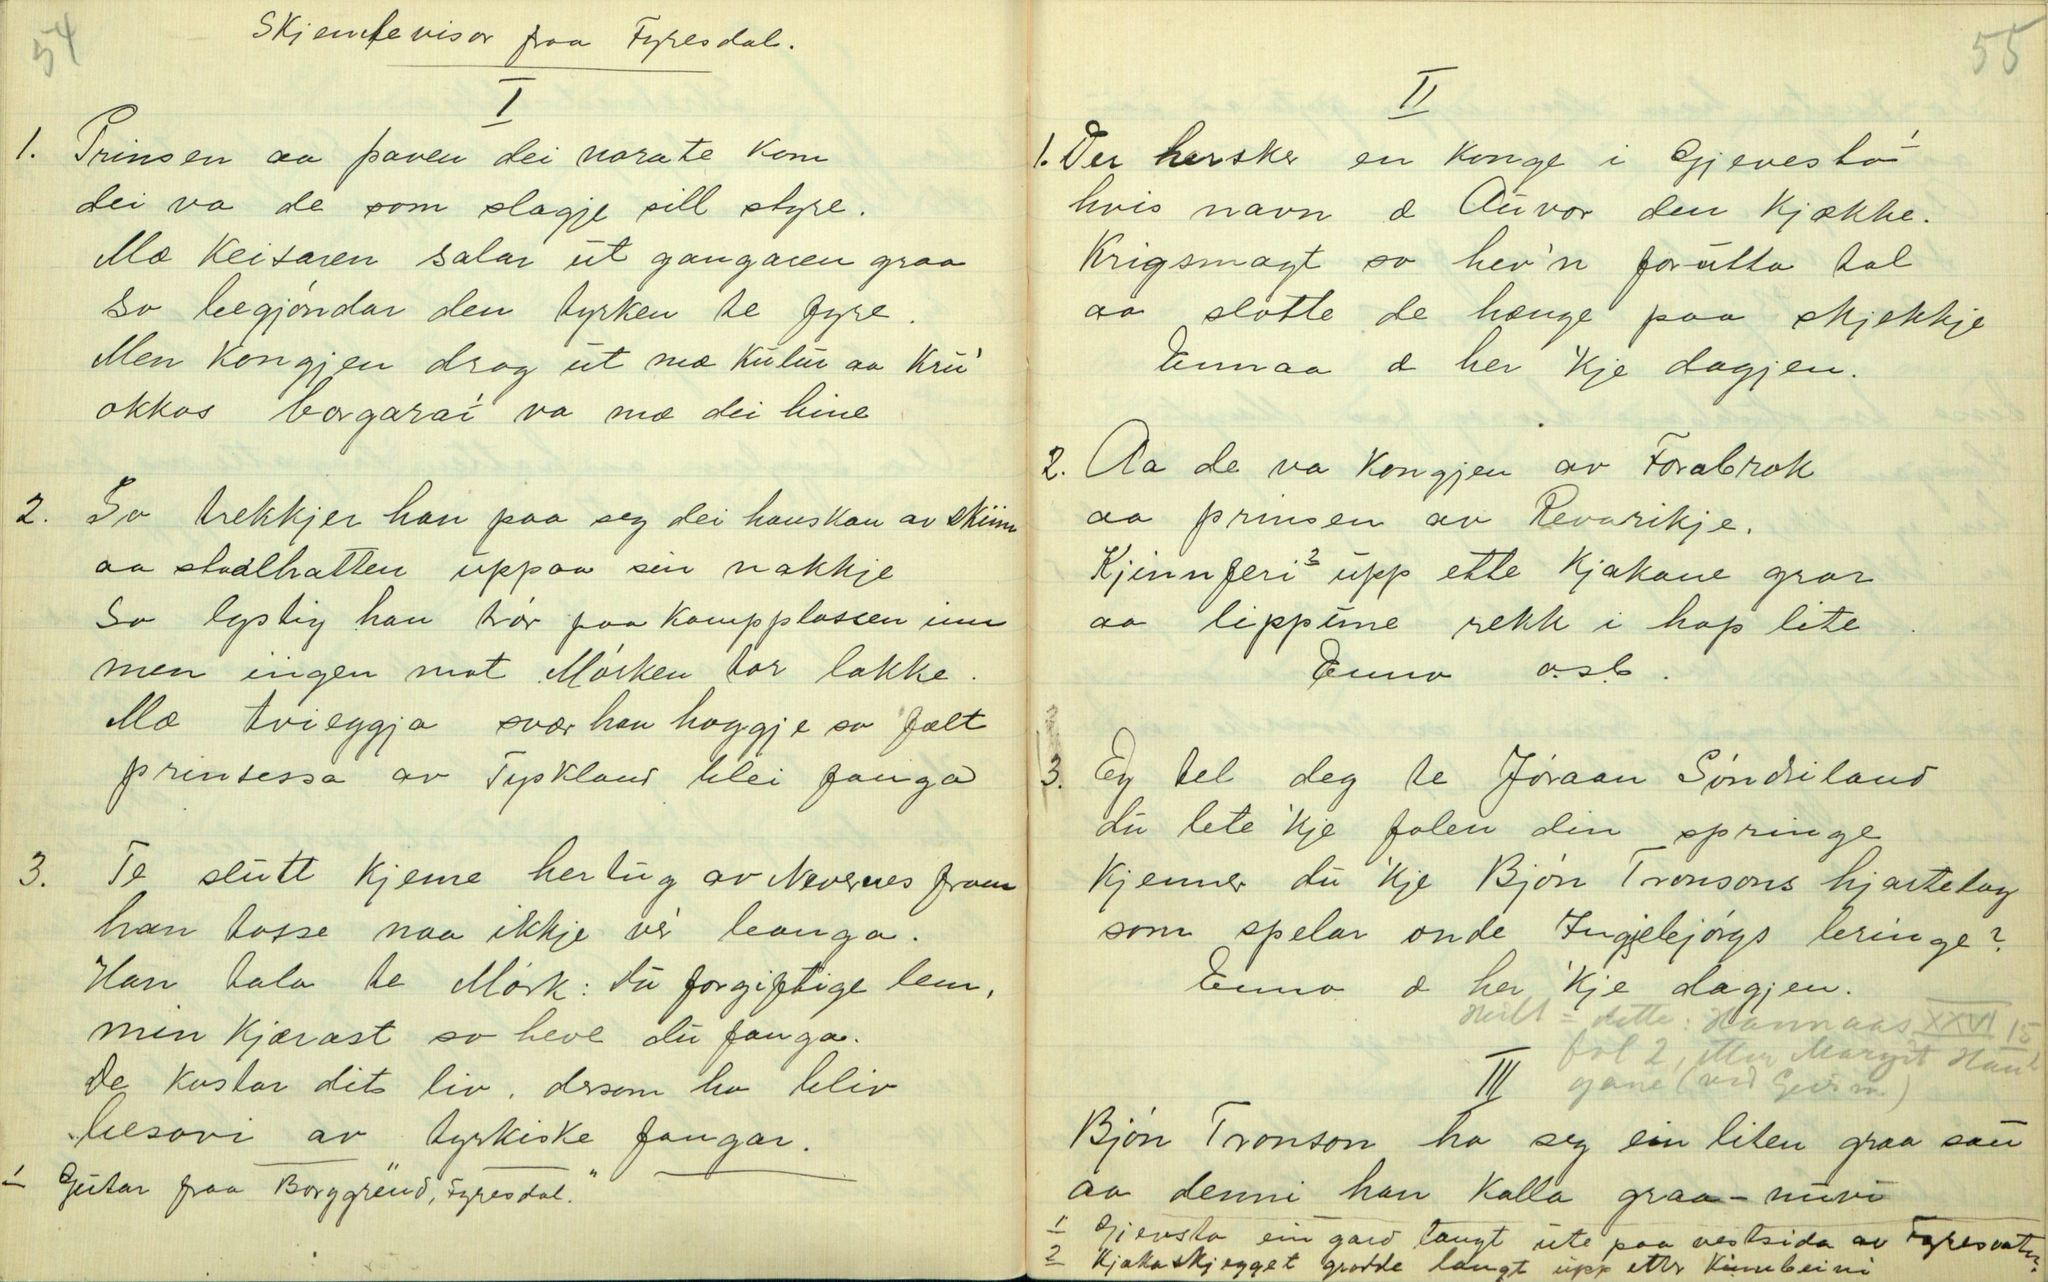 54
Skjemtevisor fraa Fyresdal.
I
1. Prinsen aa paven dei varate kom
dei va de som slagje sill styre.
Mæ Keisaren salar ut gangaren graa
so begjóndar den tyrken te fyre.
Men Kongjen drog ut mæ Kulur aa Kru'
okkos borgarar¹ va mæ dei hine
2. So trekkjer han paa seg dei hanskan av skinn
aa staalhatten uppaa sin nakkje
So lystig han trór paa Kampplassen inn
men ingen mot Mórken tor lakke.
Mæ tvieggja svær han hoggje so fælt
prinsessa av Tyskland blei fanga
3. Te slutt kjeme hertug av Nevernes fram
han tosse naa ikkje ve' leanga.
Han tala te Mórk: du forgiftige lem,
min Kjærast so heve du fanga.
De kostar dits liv, dersom ho bliv
besovi av tyrkiske fangar.
1 Gutar fraa "Borggrend, Fyresdal."
55
II
1. Der hersker en Konge i Gjevestó¹
hvis navn æ Auvor den Kjække.
Krigsmagt so hev'n forutta tal
aa slotte de hænge paa skjekkje
Ennaa æ her 'kje dagjen.
2. Aa de va Kongjen av Forabrok
aa prinsen av Revarikje.
Kjinnferi² upp ette Kjakane gror
aa lippune rekk i hop lite
Enno o.s.b.
3. Eg tel deg te Jóraan Sóndriland
du lete 'kje folen din springe
Kjenner du 'kje Bjón Tronsons hjartelag
som spelar onde Ingjebjórgs bringe?
Enno æ her 'kje dagjen.
Heilt = dette: Hannaas XXVI 15
fol 2, etter Margit Haul
gane (ved Geirm)
III
Bjón Tronson ho seg ein liten graa sau
aa denni han Kalla graa-nuvi
1 Gjevsto ein gard langt ute paa vestsida av Fyresvatn.
2 Kjakaskjegget grodde langt upp etter Kinnbeini